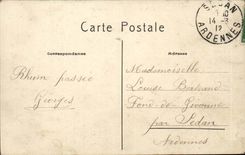 Carte Postale
SEDAN
14 -3
12
ARDENNES
Correspondance
Adresse
Rhum passée
Georges
Mademoiselle
Louise Bertrand
Fond-de-Givonne
par Sedan
Ardennes